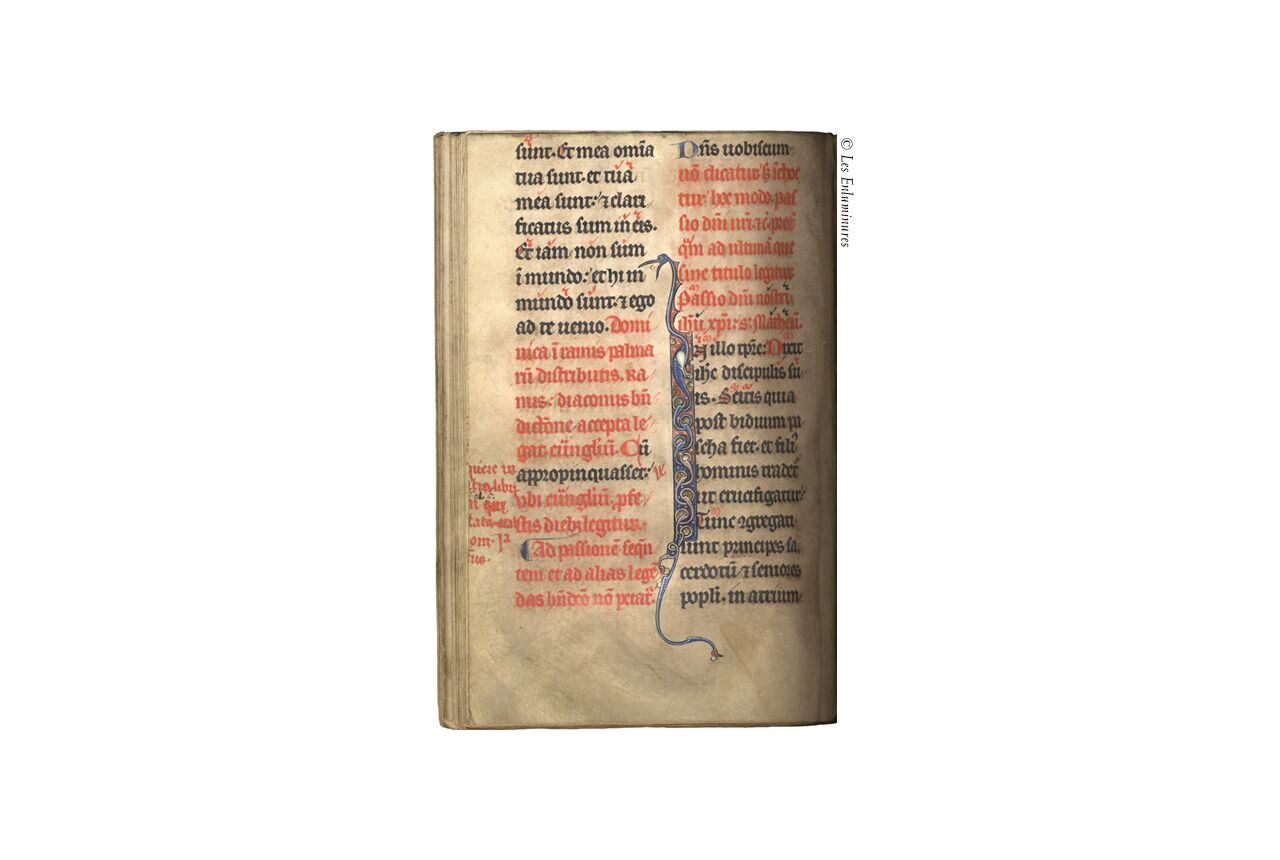 sunt. Et mea om̄ia
tua sunt. et tua
mea sunt: ⁊ clari
ficatus sum in eis.
Et iam non sum
ī mundo: et hi in
mundo sunt. ⁊ ego
ad te uenio. Domi
nica ī ramis palma
rū distributis. Ra
mis: diaconus bn̄
dictōne accepta le
gat euu̅gliu̅. Cū
appropinquasset:
Vbi euu̅gliu̅. p̱fe
stis dieb; legitur
Ad passionē seqn̄
tem et ad alias legē
das bn̄dco̅ nō petat᷑.
quere in
libri
om.
Dn̄s uobiscum
nō dicatur s̄ īchoe
tur hoc modo. pas
sio dn̄i nr̄i ⁊c̄. pret̄
qm̄ ad ultimā que
sine titulo legitur
Passio dn̄i nostri
ih̄u xp̄i. s. Matheū.
IN illo tp̄re: Dixit
ih̄c discipulis su
is. Scitis quia
post biduum pa
scha fiet. et fili᷒
hominis tradet᷑
ut crucifigatur.
Tunc ꝯgregati
sunt principes sa
cerdotū ⁊ seniores
popli. in atrium
© Les Enluminures